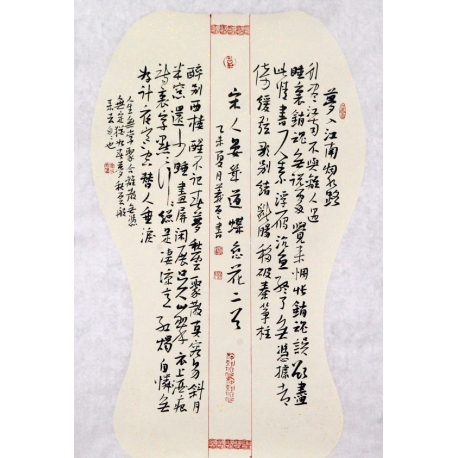 夢入江南烟水路
行盡江南不與離人遇
睡裏銷魂無說處覺來惆悵銷魂誤欲盡
此情書尺素浮雁沉魚終了無憑據卻
倚緩弦歌別緒斷腸移破秦箏柱
宋人晏幾道蝶戀花二首
乙未夏月書
醉別西樓醒不記春夢秋雲聚散真容易斜月
半窗還少睡畫屏閑展吳山翠衣上酒痕
詩裏字點點行行總是淒涼意紅燭自憐無
好計夜寒空替人垂淚
人生無常聚合離散無憑
無定猶如春夢秋雲般
也